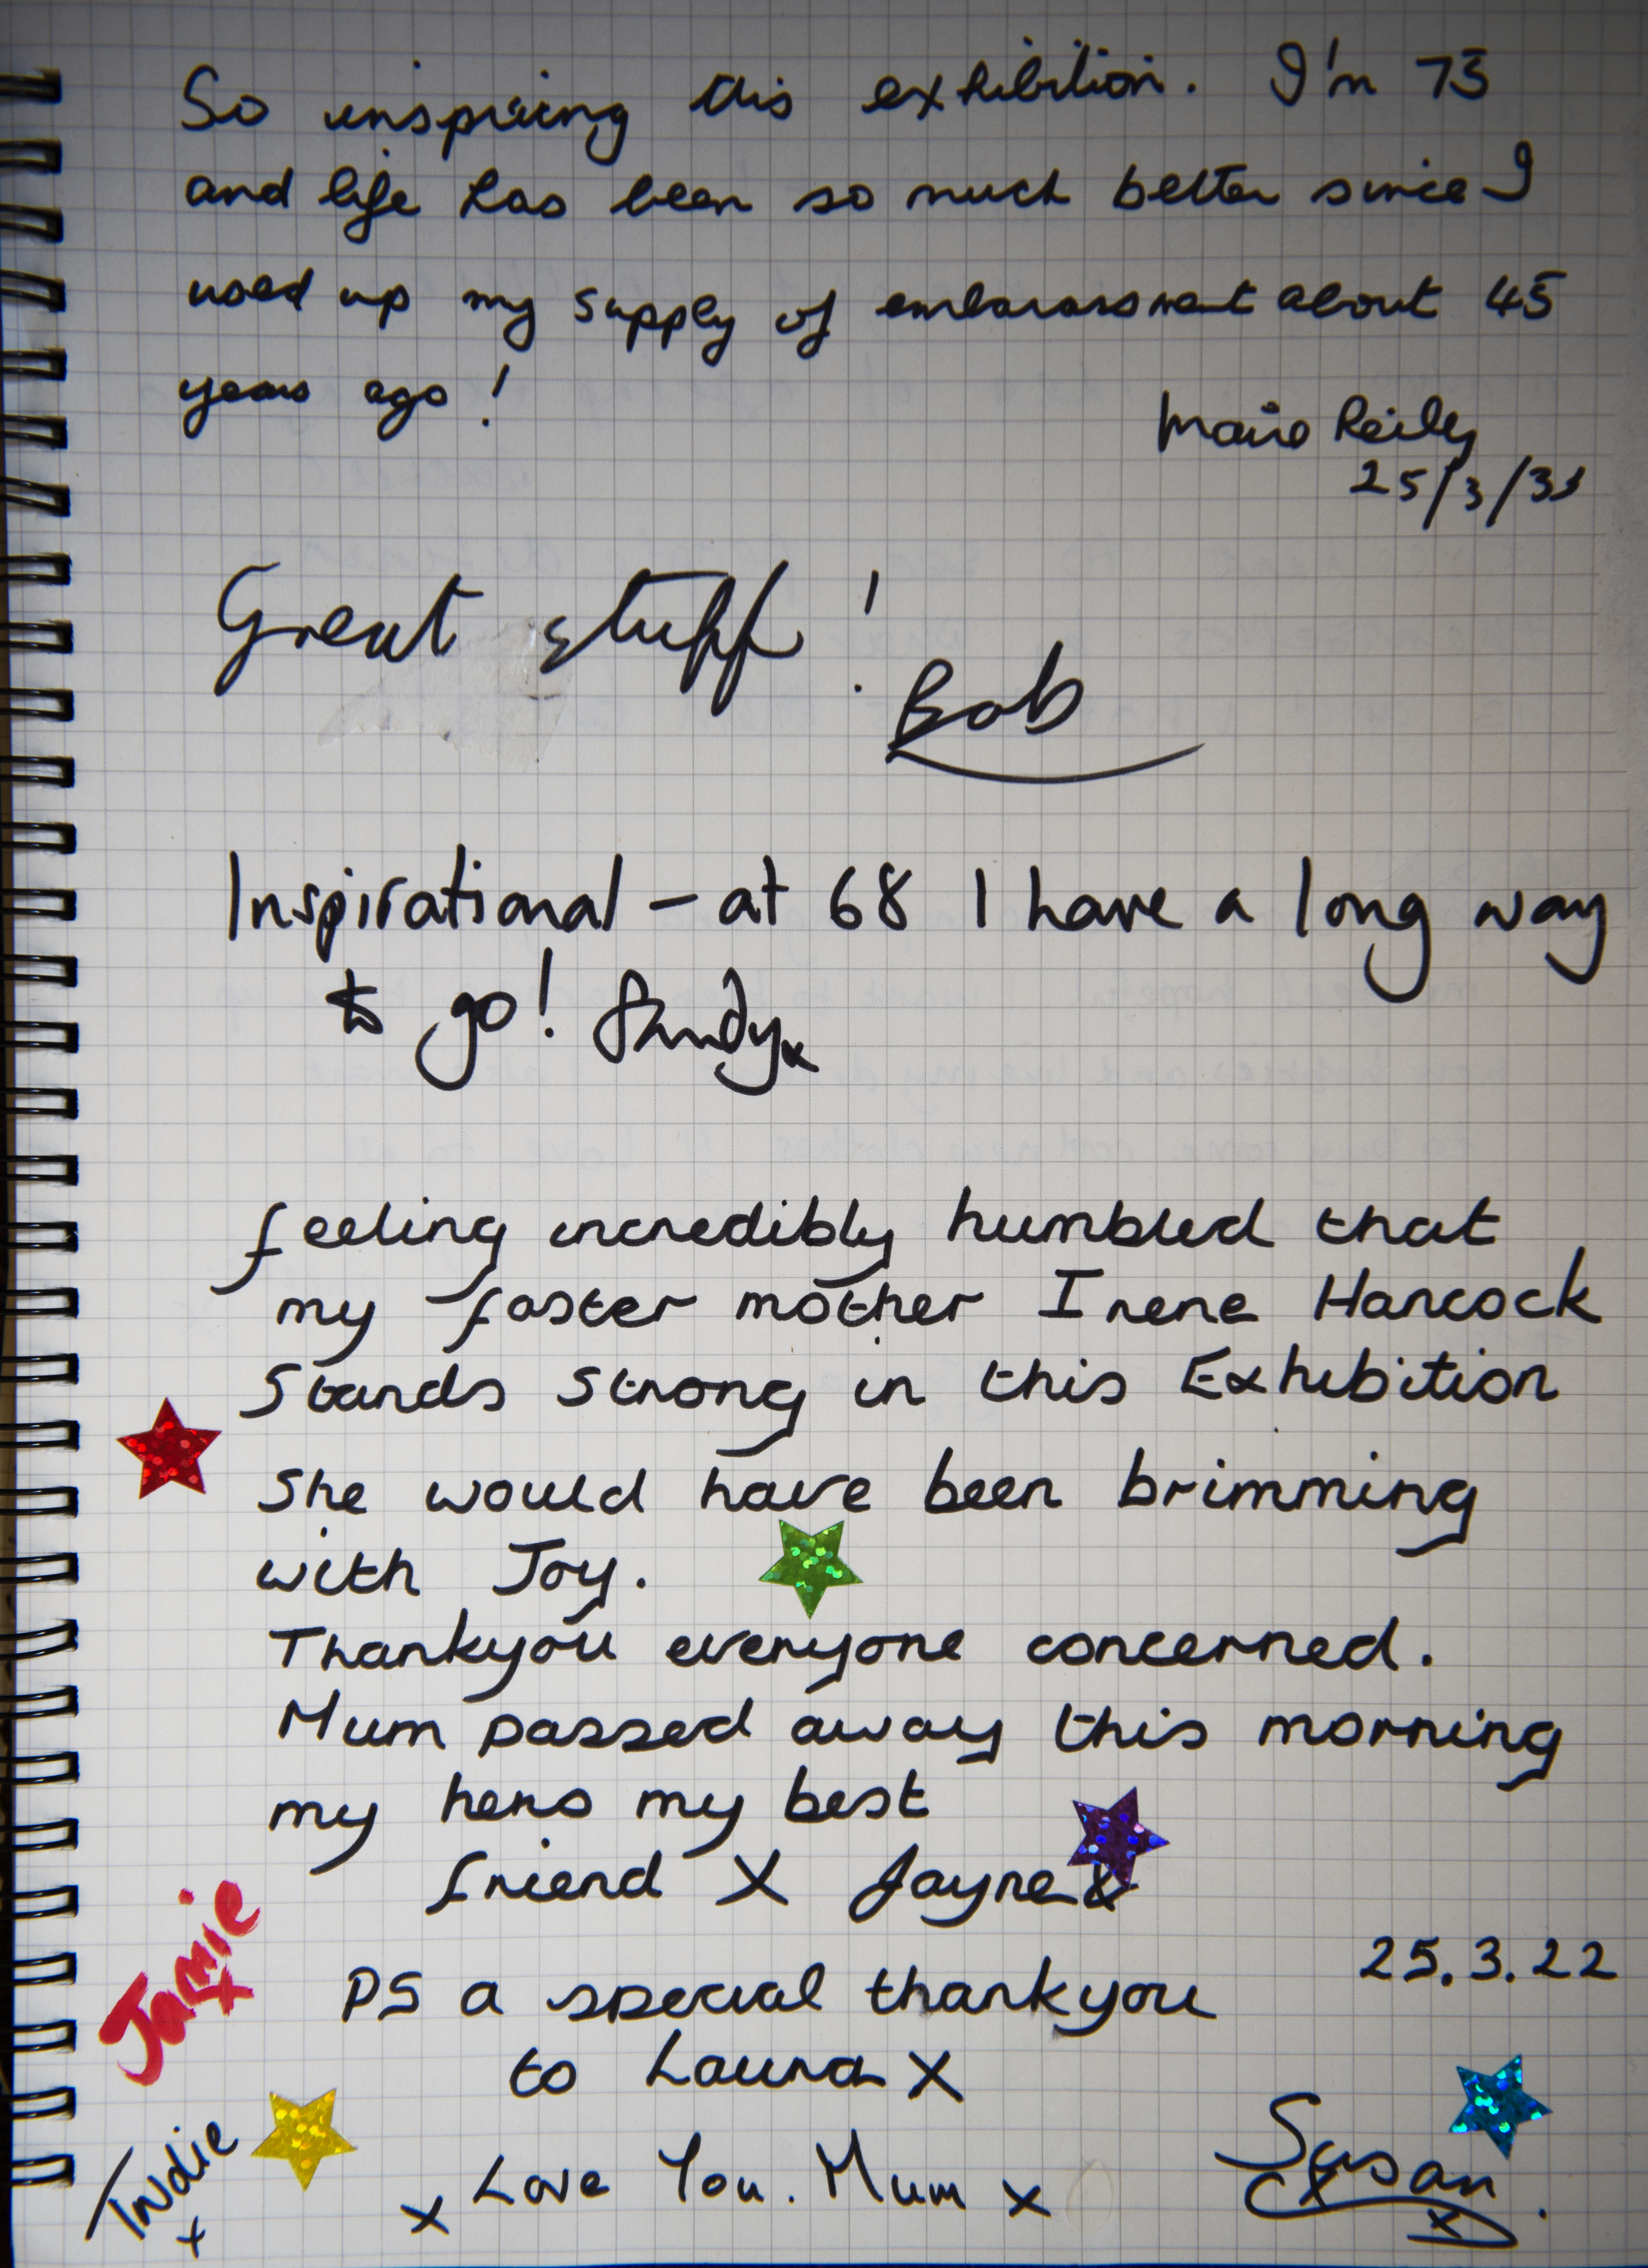 So inspiring this exhibition. I'm 73
and life has been so much better since I
used up my supply of embarassment about 45
years ago!
Reily
25/3/
Great stuff!
Bob
Inspirational - at 68 I have a long way
to go! Sandy x
feeling incredibly humbled that
my foster mother Irene Hancock
Stands Strong in this Exhibition
She would have been brimming
with Joy.
Thankyou everyone concerned.
Mum passed away this morning
my hero my best
friend X Jayne x
25.3.22
PS a special thankyou
to Laura X
Jamie x
Indie x
x Love You. Mum x
Susan x x